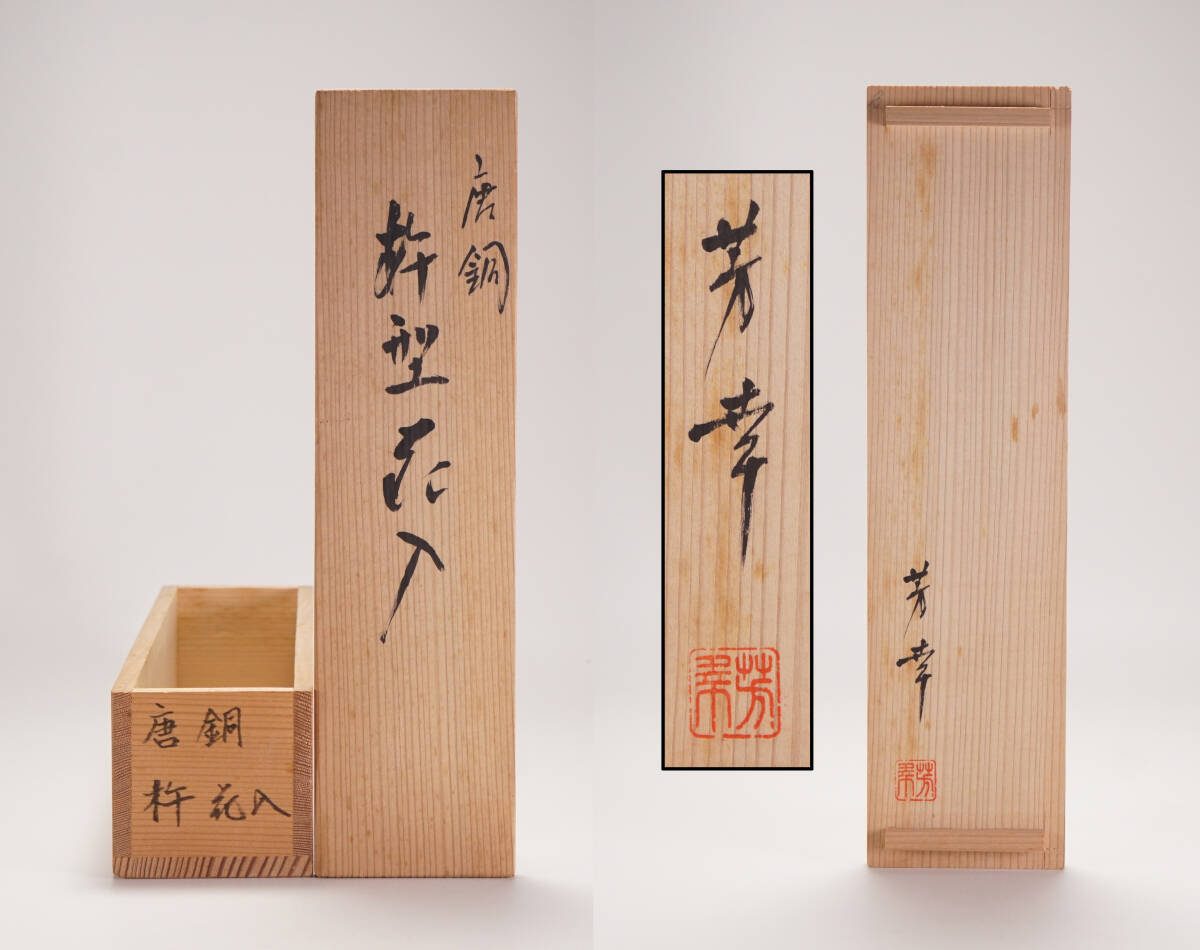 唐銅
杵型花入
唐銅
杵花入
芳幸
芳幸
芳幸
芳幸